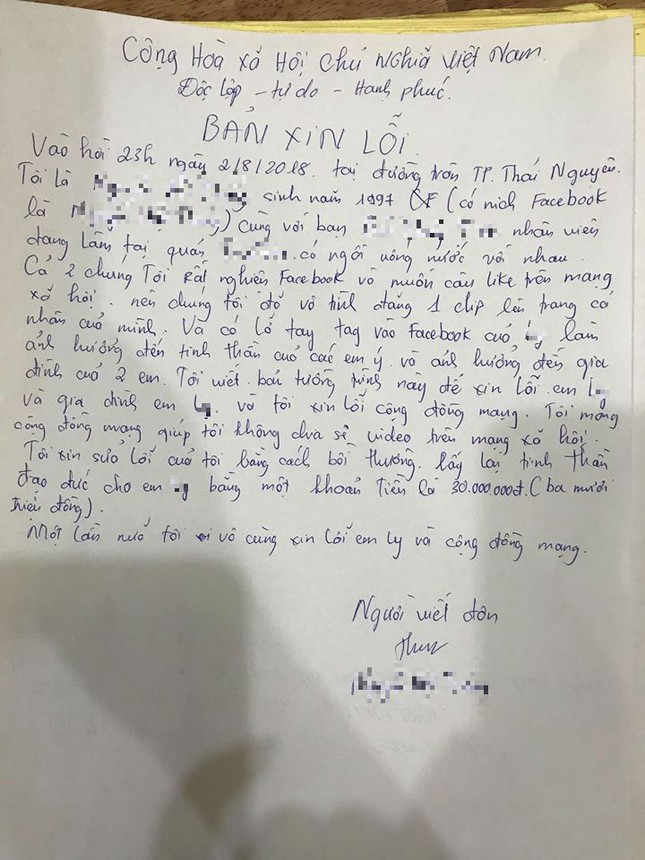 Cộng Hoà xã Hội chủ Nghĩa Việt Nam.
Độc lập - tự do - Hạnh phúc.
BẢN XIN LỖI.
Vào hồi 23h ngày 2/8/2018. tại đường tròn TP. Thái Nguyên.
Tôi là sinh năm 1997 (có nick Facebook
là ) Cùng với bạn nhân viên
đang làm tại quán có ngồi uống nước với nhau.
Cả 2 chúng Tôi Rất nghiện Facebook và muốn câu like trên mạng
xã hội. nên chúng tôi đã vô tình đăng 1 clip lên trang cá
nhân của mình. Và có lỡ tay tag vào Facebook của làm
ảnh hưởng đến tinh thần của các em ý. và ảnh hưởng đến gia
đình của 2 em. Tôi viết bản tường trình này để xin lỗi em
và gia đình em , và tôi xin lỗi cộng đồng mạng. Tôi mong
cộng đồng mạng giúp tôi không chia sẻ video trên mạng xã hội.
Tôi xin sửa lỗi của tôi bằng cách bồi thường. lấy lại tinh thần
đạo đức cho em bằng một khoản tiền là 30.000.000đ. (ba mươi
triệu đồng).
Một lần nữa tôi vô cùng xin lỗi em ly và cộng đồng mạng.
Người viết đơn